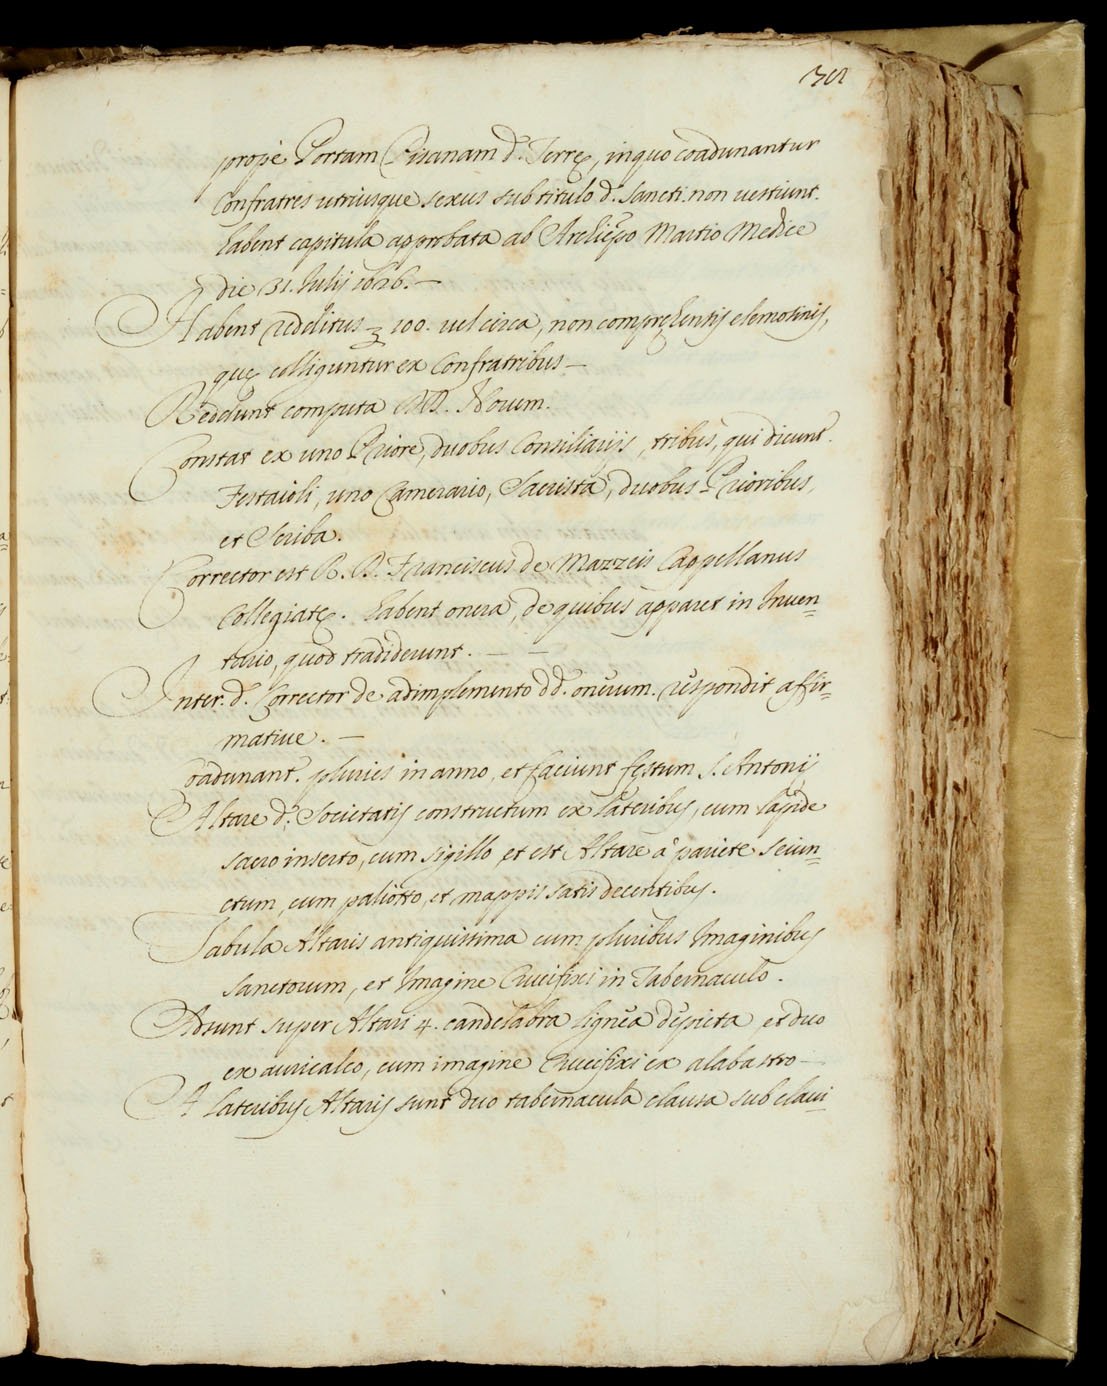 301
propè Portam Pisanam d.ę Terrę, in quo coadunantur
Confratres utriusque sexus sub titulo d.i Sancti. non vestiunt.
habent capitula approbata ab Archiep̃o Martio Medice
die 31. Julij 1626. —
Habent redditus 100. vel circa, non compręhensis elemosinis,
quę colliguntur ex Confratribus —
Reddunt computa Novum.
Constat ex uno Priore, duobus Consiliarijs, tribus, qui dicunt.
Festaioli, uno Camerario, Sacrista, duobus Prioribus,
et Scriba.
Corrector est R. D. Franciscus de Mazzeis Cappellanus
Collegiatę. habent onera, de quibus apparet in Inven=
tario, quod tradiderunt. — —
Inter. d. Corrector de adimplemento dd. onerum. respondit affir=
mative. —
Coadunant. pluries in anno, et faciunt festum S. Antonij
Altare d.ę Societatis constructum ex lateribus, cum lapide
sacro inserto, cum sigillo, et est Altare à pariete seiun=
ctum, cum paliotto, et mappis satis decentibus.
Tabula Altaris antiquissima cum pluribus Imaginibus
Sanctorum, et Imagine Crucifixi in Tabernaculo.
Adsunt super Altari 4. candelabra lignea depicta et duo
ex auricalco, cum imagine Crucifixi ex alabastro —
A lateribus Altaris sunt duo tabernacula clausa sub clavi=